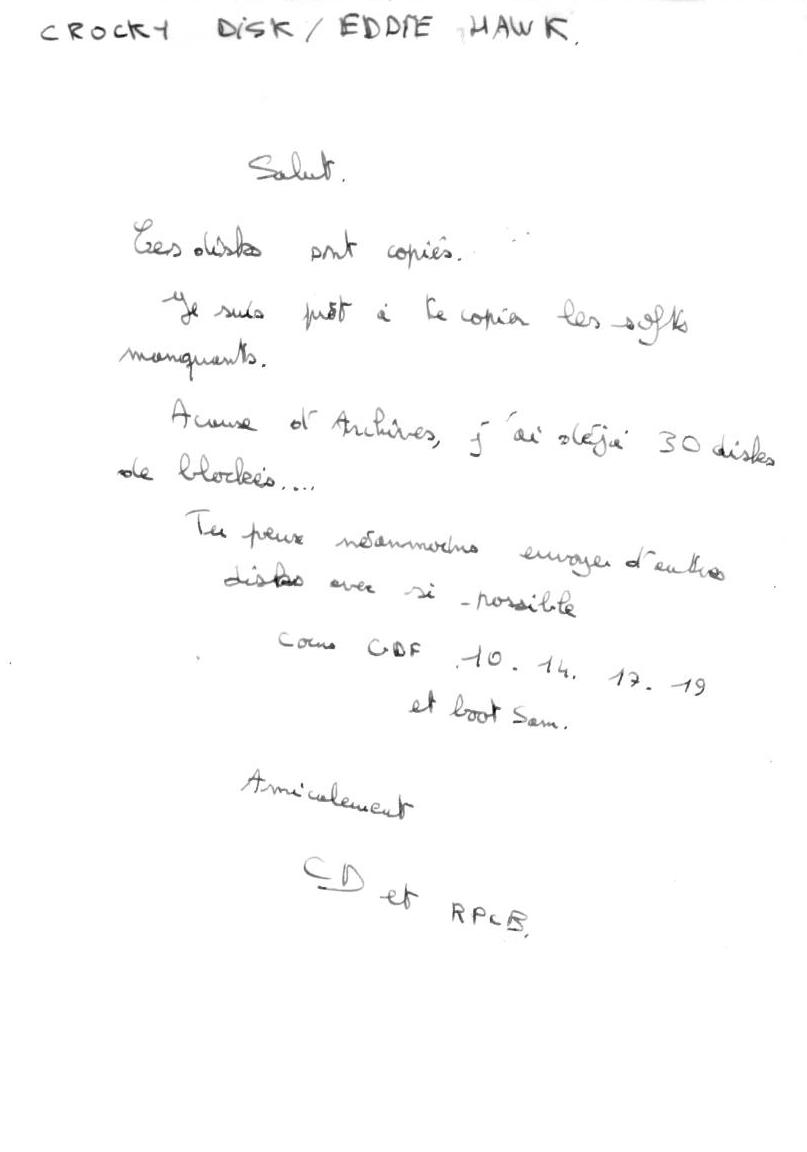 CROCKY DISK / EDDIE HAWK.
Salut.
Tes disks sont copiés.
Je suis prêt à te copier les softs
manquants.
A cause d'Archives, j'ai déjà 30 disks
de blockés....
Tu peux néanmoins envoyer d'autres
disks avec si possible
Cours GDF 10. 14. 17. 19
et boot Sam.
Amicalement
CD et RPCB.